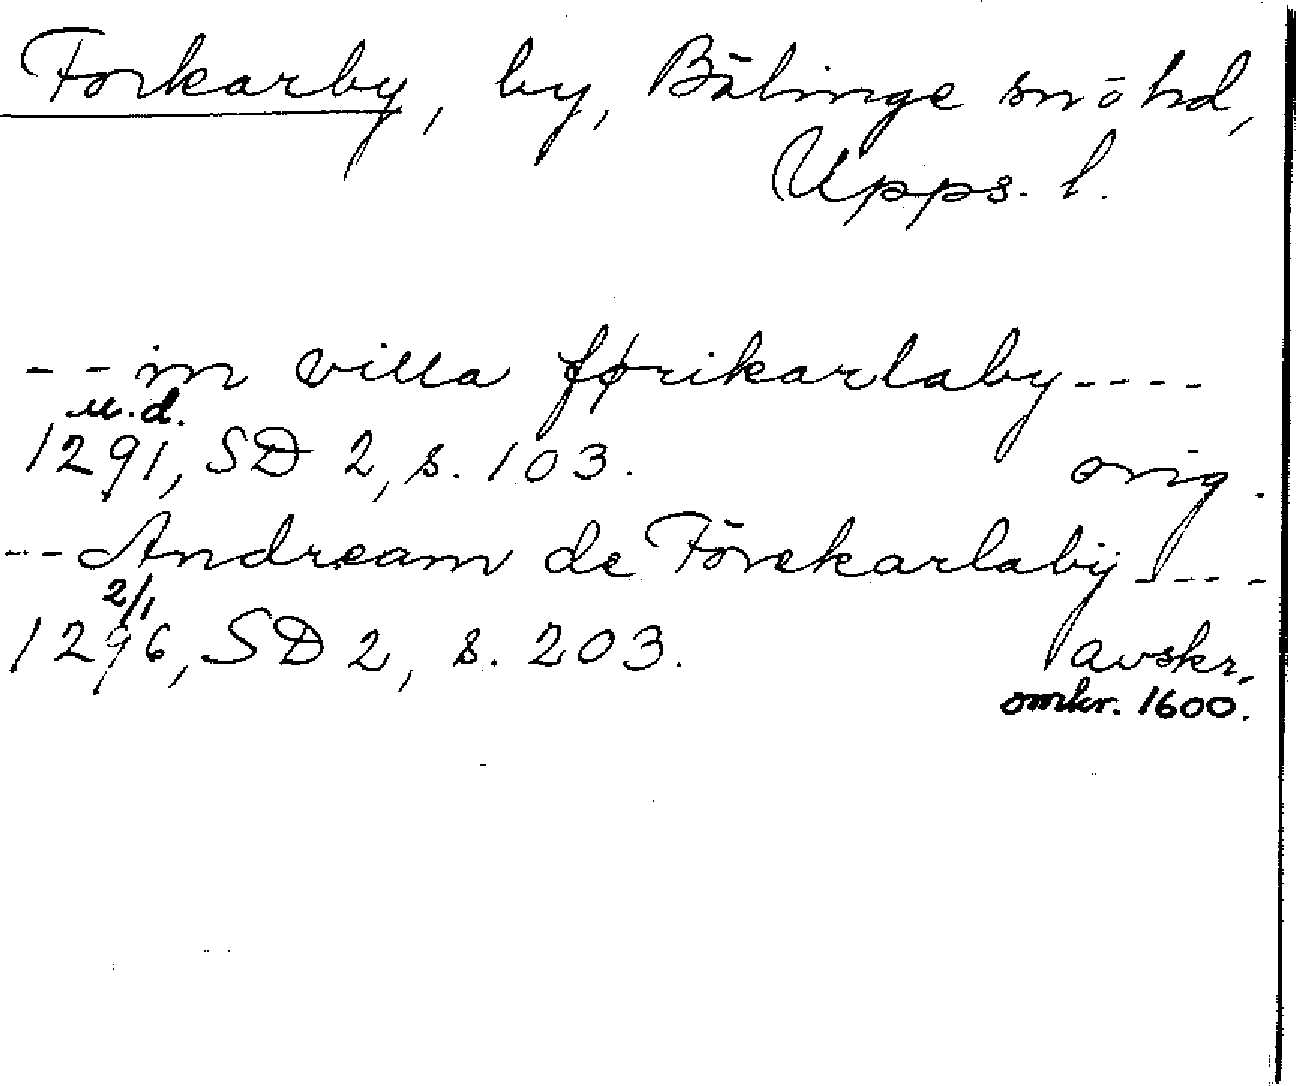 Forkarby, by, Bälinge sn o hd,
Upps. l.
-- in villa førikarlaby ----
u.d.
1291, SD 2, s. 103. orig.
-- Andream de Förekarlaby ----
2/1
1296, SD 2, s. 203. avskr.
omkr. 1600.